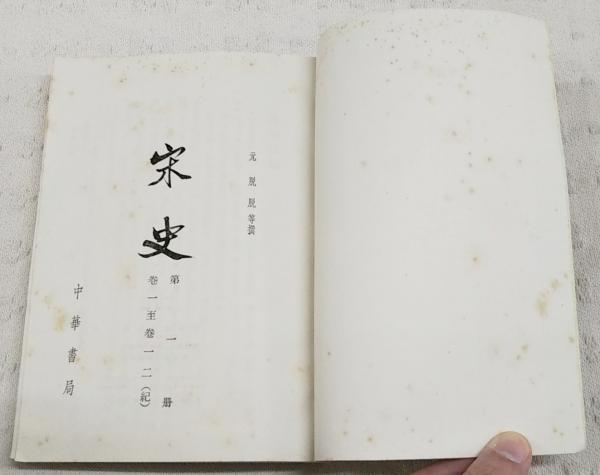 元 脱脱等撰
宋史
第一册
卷一至卷一二(紀)
中華書局